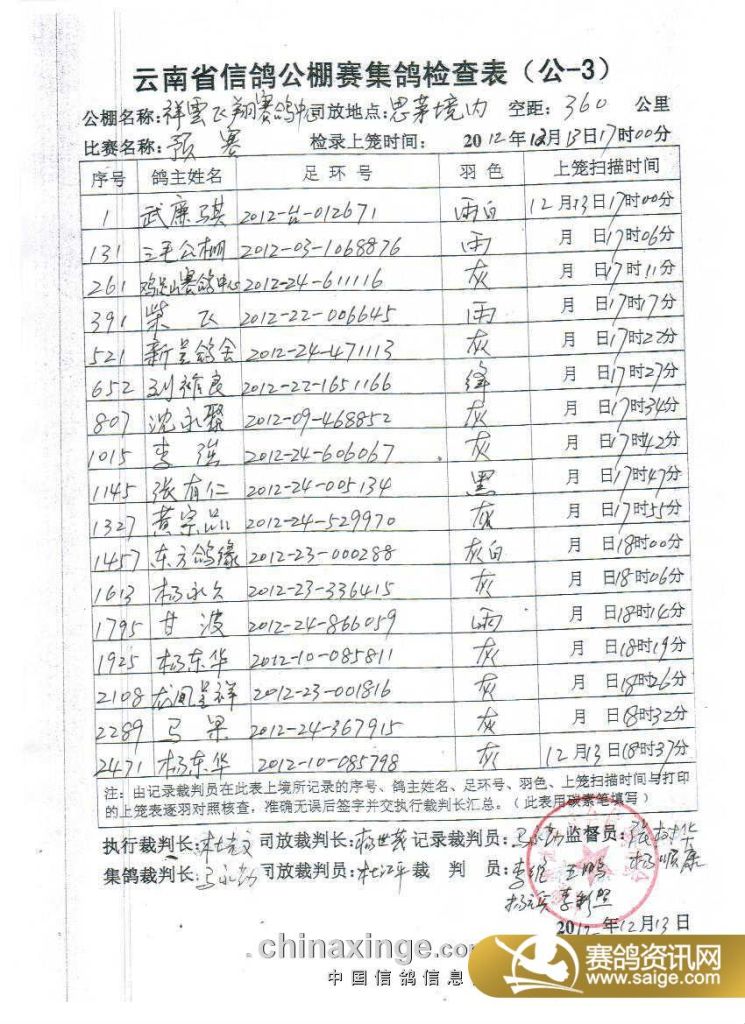 云南省信鸽公棚赛集鸽检查表（公-3）
公棚名称：祥雲飞翔赛鸽中心 司放地点：思茅境内 空距：360 公里
比赛名称：预赛 检录上笼时间： 2012年12月13日17时00分
序号 鸽主姓名 足环号 羽色 上笼扫描时间
1 武廉骐 2012-台-012671 雨白 12月13日17时00分
131 三毛公棚 2012-03-1068876 雨 月 日17时06分
261 鸡足山赛鸽中心 2012-24-611116 灰 月 日17时11分
391 柴飞 2012-22-006645 雨 月 日17时17分
521 新呈鸽舍 2012-24-471113 灰 月 日17时22分
652 刘裕良 2012-22-1651166 绛 月 日17时27分
807 沈永聪 2012-09-468852 灰 月 日17时34分
1015 李 2012-24-606067 灰 月 日17时42分
1145 张有仁 2012-24-005134 黑 月 日17时47分
1327 黄宗品 2012-24-529970 灰 月 日17时55分
1457 东方鸽缘 2012-23-000288 灰白 月 日18时00分
1613 杨永久 2012-23-336415 灰 月 日18时06分
1795 甘波 2012-24-866059 雨 月 日18时14分
1925 杨东华 2012-10-085811 灰 月 日18时19分
2108 龙凤呈祥 2012-23-001816 灰 月 日18时26分
2289 马果 2012-24-367915 灰 月 日18时32分
2471 杨东华 2012-10-085798 灰 12月13日18时37分
注：由记录裁判员在此表上境所记录的序号、鸽主姓名、足环号、羽色、上笼扫描时间与打印
的上笼表逐羽对照核查，准确无误后签字并交执行裁判长汇总。（此表用碳素笔填写）
执行裁判长： 司放裁判长：杨世茂 记录裁判员：马永勤 监督员：张树华
集鸽裁判长：马永勤 司放裁判员：杜江平 裁 判 员：李维 王鹏 杨顺康
李新照
2012年12月13日
www.chinaxinge.com
中国信鸽信息
赛鸽资讯网
www.saige.com